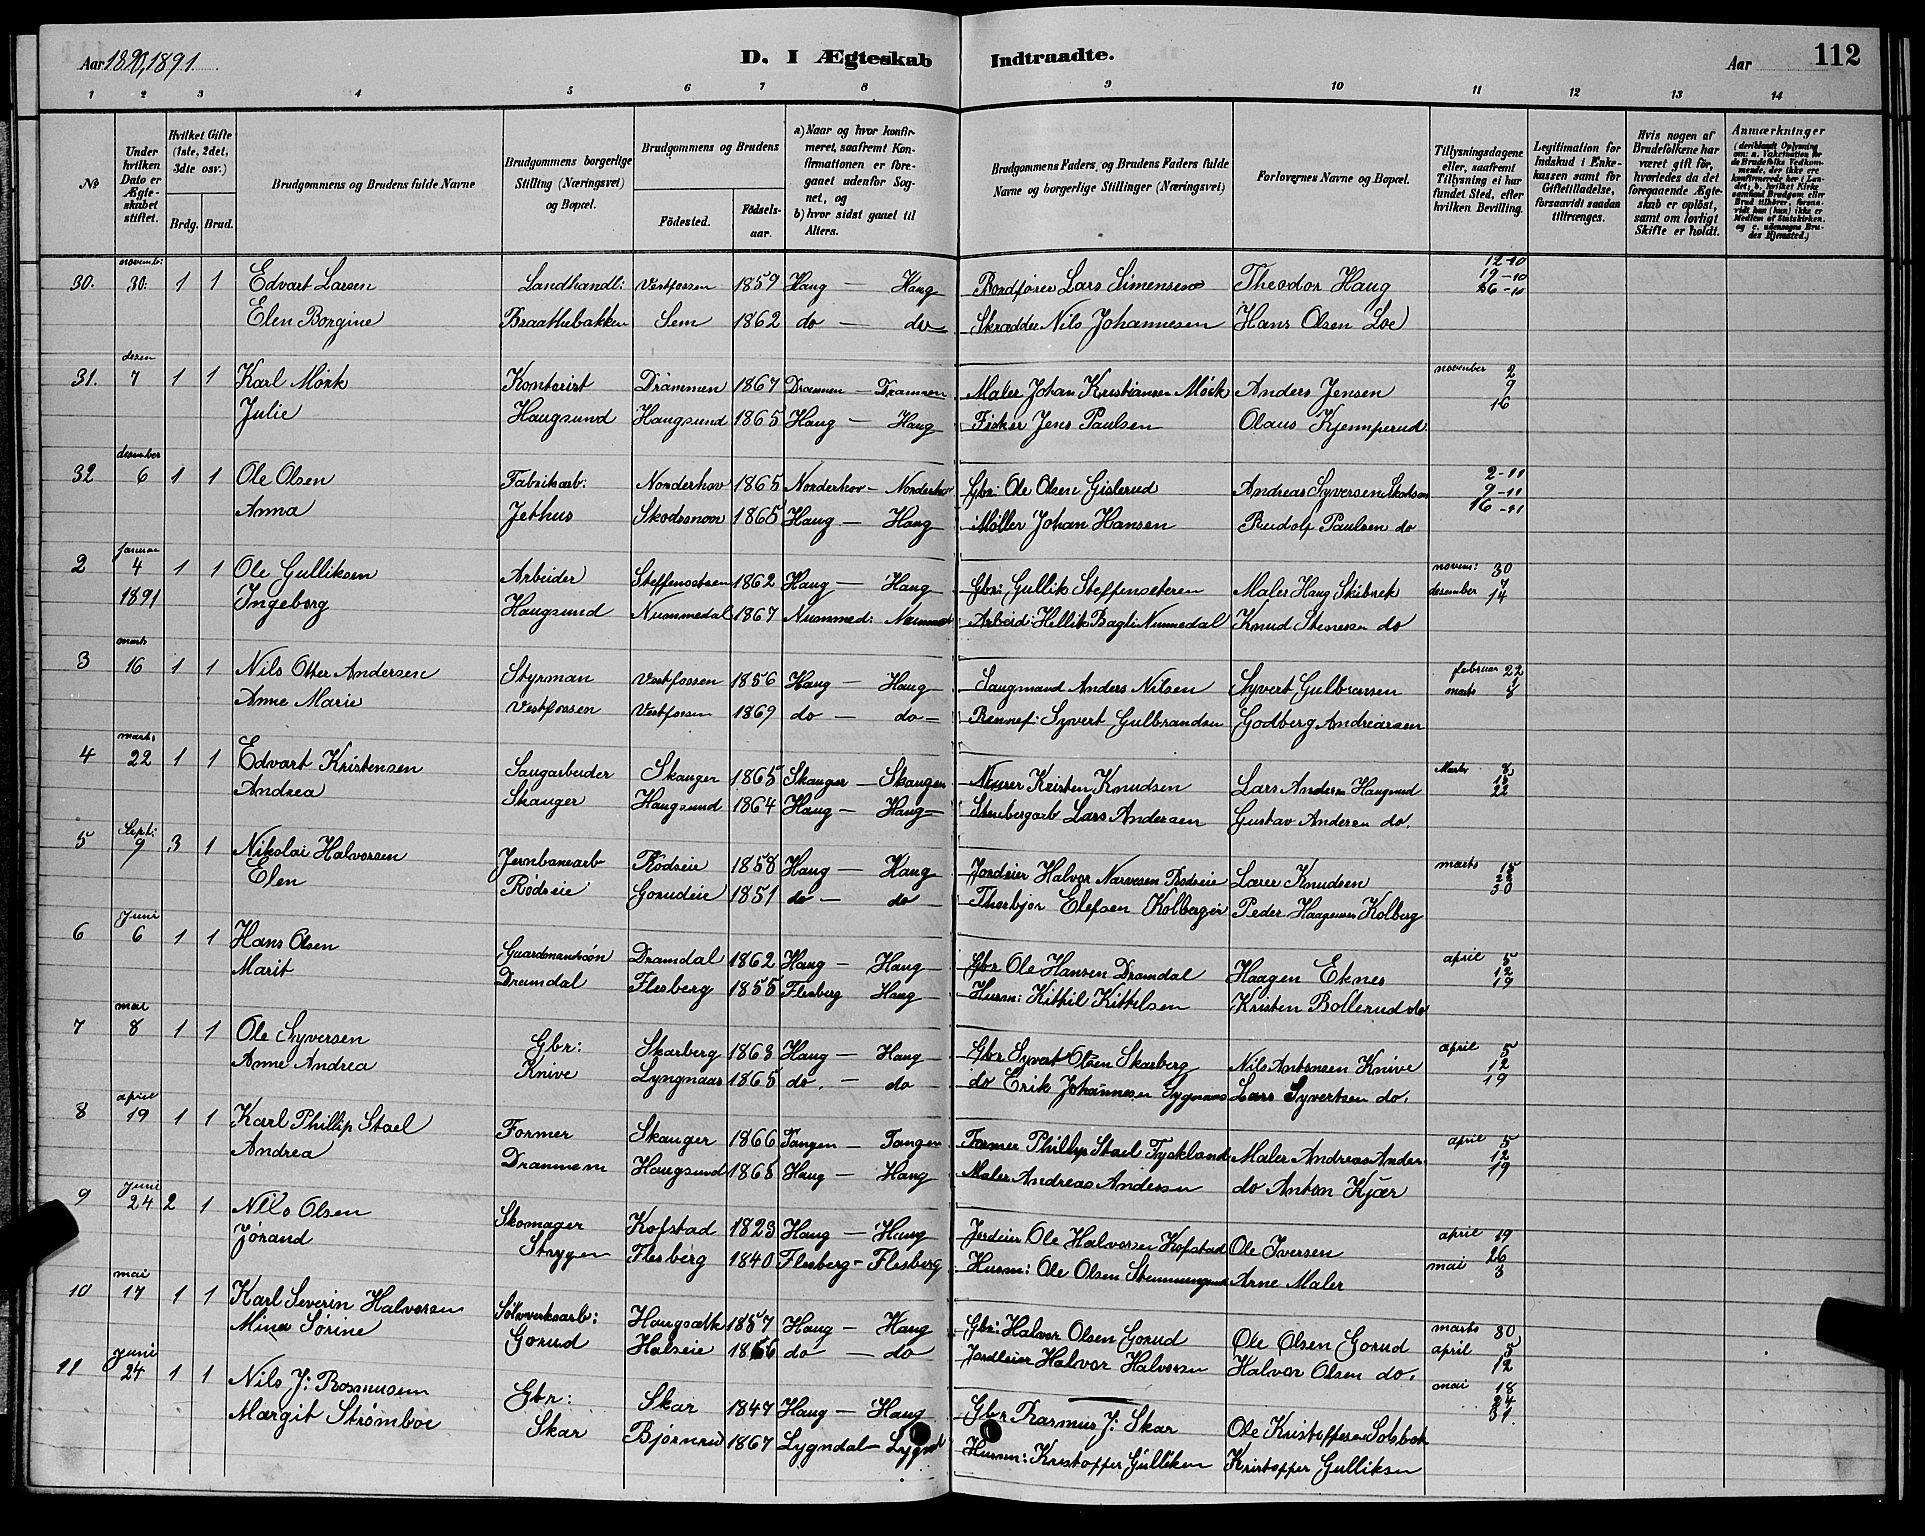 Aar 1890, 1891. D. I Ægteskab Indtraadte. Aar 112
1 2 3 4 5 6 7 8 9 10 11 12 13 14
No
Under hvilken Dato er Ægteskabet stiftet.
Hvilket Gifte (1ste, 2det, 3die osv.)
Brdg. Brud.
Brudgommens og Brudens fulde Navne
Brudgommens borgerlige Stilling (Næringsvei) og Bopæl.
Brudgommens og Brudens
Födested. Födsels-aar.
a) Naar og hvor konfirmeret, saafremt Konfirmationen er foregaaet udenfor Sognet, og
b) hvor sidst gaaet til Alters.
Brudgommens Faders, og Brudens Faders fulde Navne og borgerlige Stillinger (Næringsvei)
Forlovernes Navne og Bopæl.
Tillysningsdagene eller, saafremt Tillysning ei har fundet Sted, efter hvilken Bevilling.
Legitimation for Indskud i Enkekassen samt for Giftetilladelse, forsaavidt saadan tiltrænges.
Hvis nogen af Brudefolkene har været gift för, hvorledes da det foregaaende Ægteskab er oplöst, samt om lovligt Skifte er holdt.
Anmærkninger
novemb: 12-10
30. 30. 1 1 Edvart Larsen Landhandl: Vestfossen 1859 Haug — Haug Bordfører Lars Simensen Theodor Haug 19-10
26-10
Elen Borgine Braathebakken Sem 1862 do — do Skrædder Nils Johannesen Hans Olsen Loe
desem
31. 7 1 1 Karl Mørk Kontorist Drammen 1867 Drammen — Drammen Maler Johan Kristiansen Mørk Anders Jensen november 2
9
16
Julie Haugsund Haugsund 1865 Haug — Haug Fisker Jens Paulsen Olaus Kjemperud
desember
32 6 1 1 Ole Olsen Fabrikarb: Norderhov 1865 Norderhov — Norderhov Gbr: Ole Olsen Gislerud Andreas Syversen 2-11
9-11
16-11
Anna Jethus Skodsmoen 1865 Haug — Haug Møller Johan Hansen Rudolf Paulsen do
januar
2 4 1 1 Ole Gulliksen Arbeider Steffensetren 1862 Haug — Haug Gbr: Gullik Steffenseteren Maler Haug novem: 30
desember 7
14
1891 Ingeborg Haugsund Nummedal 1867 Nummed: Nummed Arbeid: Hellik Bagli Nummedal Knud Stenersen do
marts
3 16 1 1 Nils Otter Andersen Styrman Vestfossen 1856 Haug — Haug Saugmand Anders Nilsen Syvert Gulbransen februar 22
marts 1
8
Anne Marie Vestfossen Vestfossen 1869 do — do — Syvert Gulbrandsen Godberg Andreassen
marts
4 22 1 1 Edvart Kristensen Saugarbeider Skauger 1865 Skauger — Skaugen Murer Kristen Knudsen Lars Andersen Haugsund Marts 8
15
22
Andrea Skauger Haugsund 1864 Haug — Haug — Stenbergarb Lars Andersen Gustav Andersen do.
Septi:
5 9 3 1 Nikolai Halvorsen Jernbanearb Rødseie 1858 Haug — Haug Jordeier Halvor Narvesen Rødseie Larer Knudsen marts 15
22
30
Elen Rødseie Gorudeie 1851 do — do — Thorbjør Elefsen Kolbergeie Peder Haagensen Kolberg
Juni
6 6 1 1 Hans Olsen Guardmandssøn Dramdal 1862 Haug — Haug — Gbr Ole Hansen Dramdal Haagen Eknes april 5
12
19
Marit Dramdal Flesberg 1855 Flesberg Haug Husm: Kittil Kittilsen Kristen Bollerud do
mai
7 8 1 1 Ole Syversen Gbr: Skarberg 1863 Haug — Haug — Gbr Syvert Olsen Skarberg Nils Antonsen Knive april 5
12
19
Anne Andrea Knive Lyngnaas 1865 do. — do — do Erik Johannesen Lygnaas Lars Syvertsen do.
april
8 19 1 1 Karl Phillip Stael Former Skauger 1866 Tangen — Tangen Former Phillip Stael Tyskland Maler Andreas Ander april 5
12
19
Andrea Drammem Haugsund 1865 Haug — Haug Maler Andreas Andersen do Anton Kjær
Juni
9 24 2 1 Nils Olsen Skomager Kofstad 1823 Haug — Haug Jordeier Ole Halvorsen Kofstad Ole Iversen april 19
26
mai 3
Jørand Strygen Flesberg 1840 Flesberg — Flesberg Husm: Ole Olsen Arne Maler
mai
10 17 1 1 Karl Severin Halvorsen Sølvverksarb: 1857 Haug — Haug Gbr: Halvor Olsen Gorud Ole Olsen Gorud marts 30
april 5
12
Mina Sørine Gorud Halseie 1866 do — do Jordleier Halvor Halvorsen Halvor Olsen do.
Juni
11 24 1 1 Nils J: Rasmusen Gbr: Skar 1847 Haug — Haug Gbr Rasmus J: Skar Ole Kristoffersen mai 18
24
31.
Margit Strømboe Skar Bjørnrud 1867 Lygndal — Lygnd Husm: Kristoffer Gulliksen Kristoffer Gulliksen